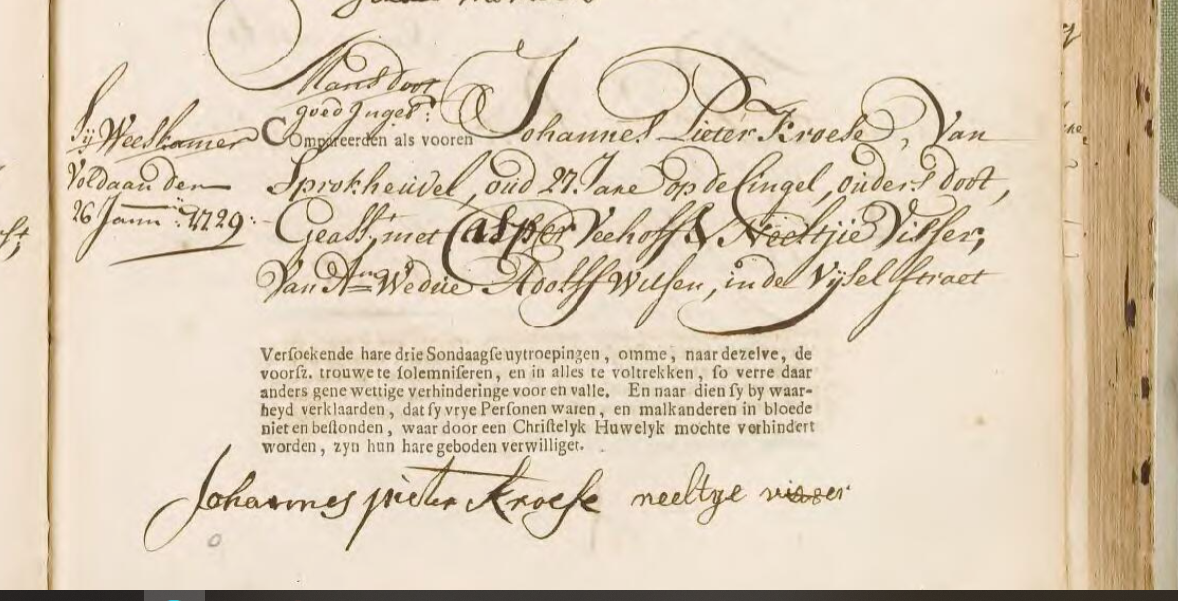 Mans doot
goed Ingeb:
Sy Weeskamer
Voldaan den
26 Janu: 1729:
Compareerden als vooren Johannes Pieter Kroese, Van
Sprokheuvel, oud 27. Jare op de Cingel, ouders doot,
Geasst, met Casper Veehoff & Neeltjie Visser,
Van A:m Wedue Adolff Wilsen, in de Vijsel straet
Versoekende hare drie Sondaagse uytroepingen, omme, naar dezelve, de
voorsz. trouwe te solemniseren, en in alles te voltrekken, so verre daar
anders gene wettige verhinderinge voor en valle. En naar dien sy by waar-
heyd verklaarden, dat sy vrye Personen waren, en malkanderen in bloede
niet en bestonden, waar door een Christelyk Huwelyk mochte verhindert
worden, zyn hun hare geboden verwilliget.
Johannes pieter Kroese neeltye visser